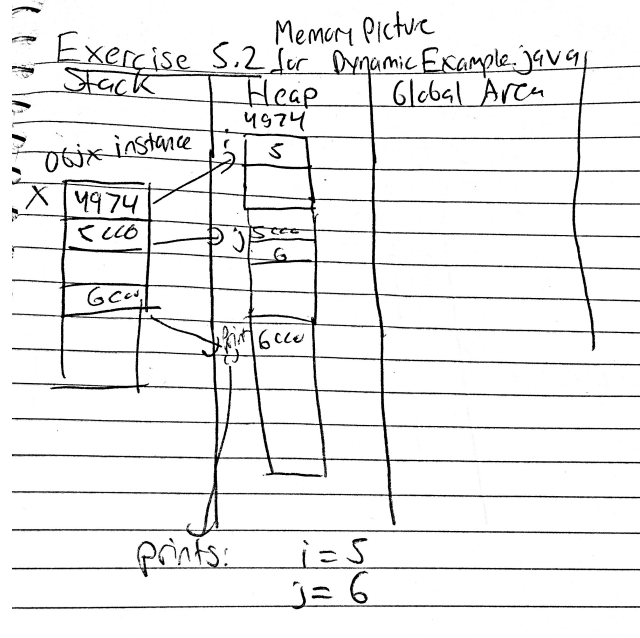 Memory Picture
Exercise 5.2 for DynamicExample.java
Stack Heap Global Area
4974
ObjX instance i 5
X 4974
5cc0 j 5cc0
6
6cc0
print 6cc0
()
prints: i = 5
j = 6